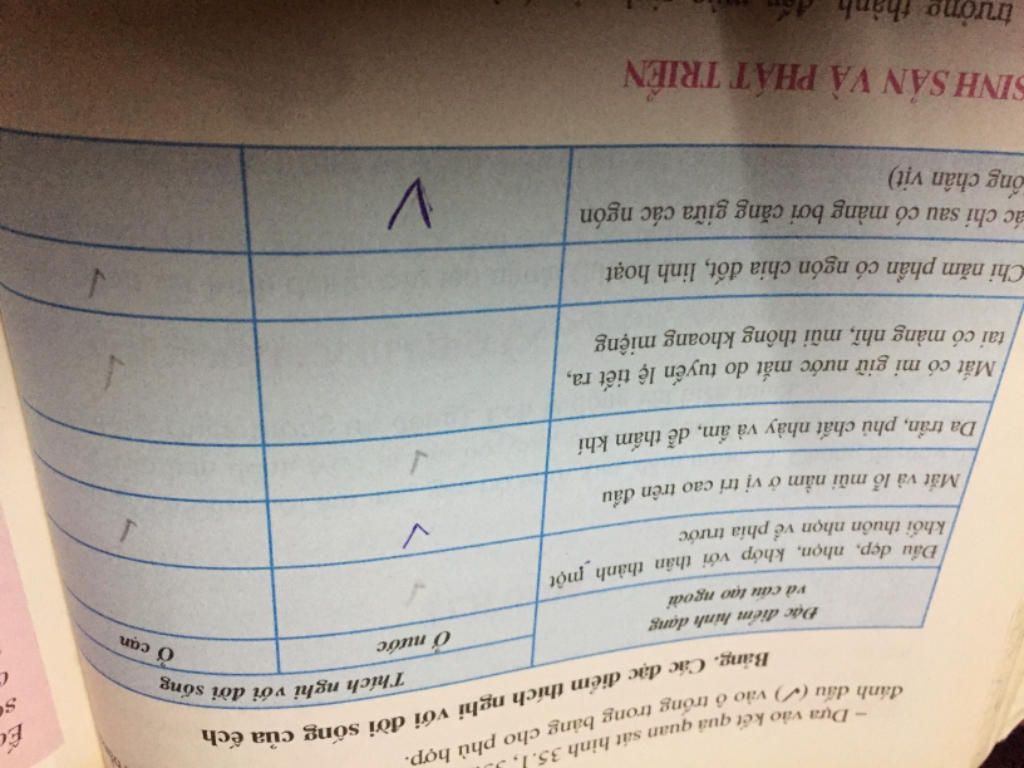 – Dựa vào kết quả quan sát hình 35.1,
đánh dấu (✓) vào ô trống trong bảng cho phù hợp.
Bảng. Các đặc điểm thích nghi với đời sống của ếch
Đặc điểm hình dạng
và cấu tạo ngoài
Thích nghi với đời sống
Ở nước
Ở cạn
Đầu dẹp, nhọn, khớp với thân thành một
khối thuôn nhọn về phía trước
Mắt và lỗ mũi nằm ở vị trí cao trên đầu
Da trần, phủ chất nhày và ẩm, dễ thấm khí
Mắt có mi giữ nước mắt do tuyến lệ tiết ra,
tai có màng nhĩ, mũi thông khoang miệng
Chi năm phần có ngón chia đốt, linh hoạt
chi sau có màng bơi căng giữa các ngón
chân vịt)
SINH SẢN VÀ PHÁT TRIỂN
trưởng thành, đến mùa